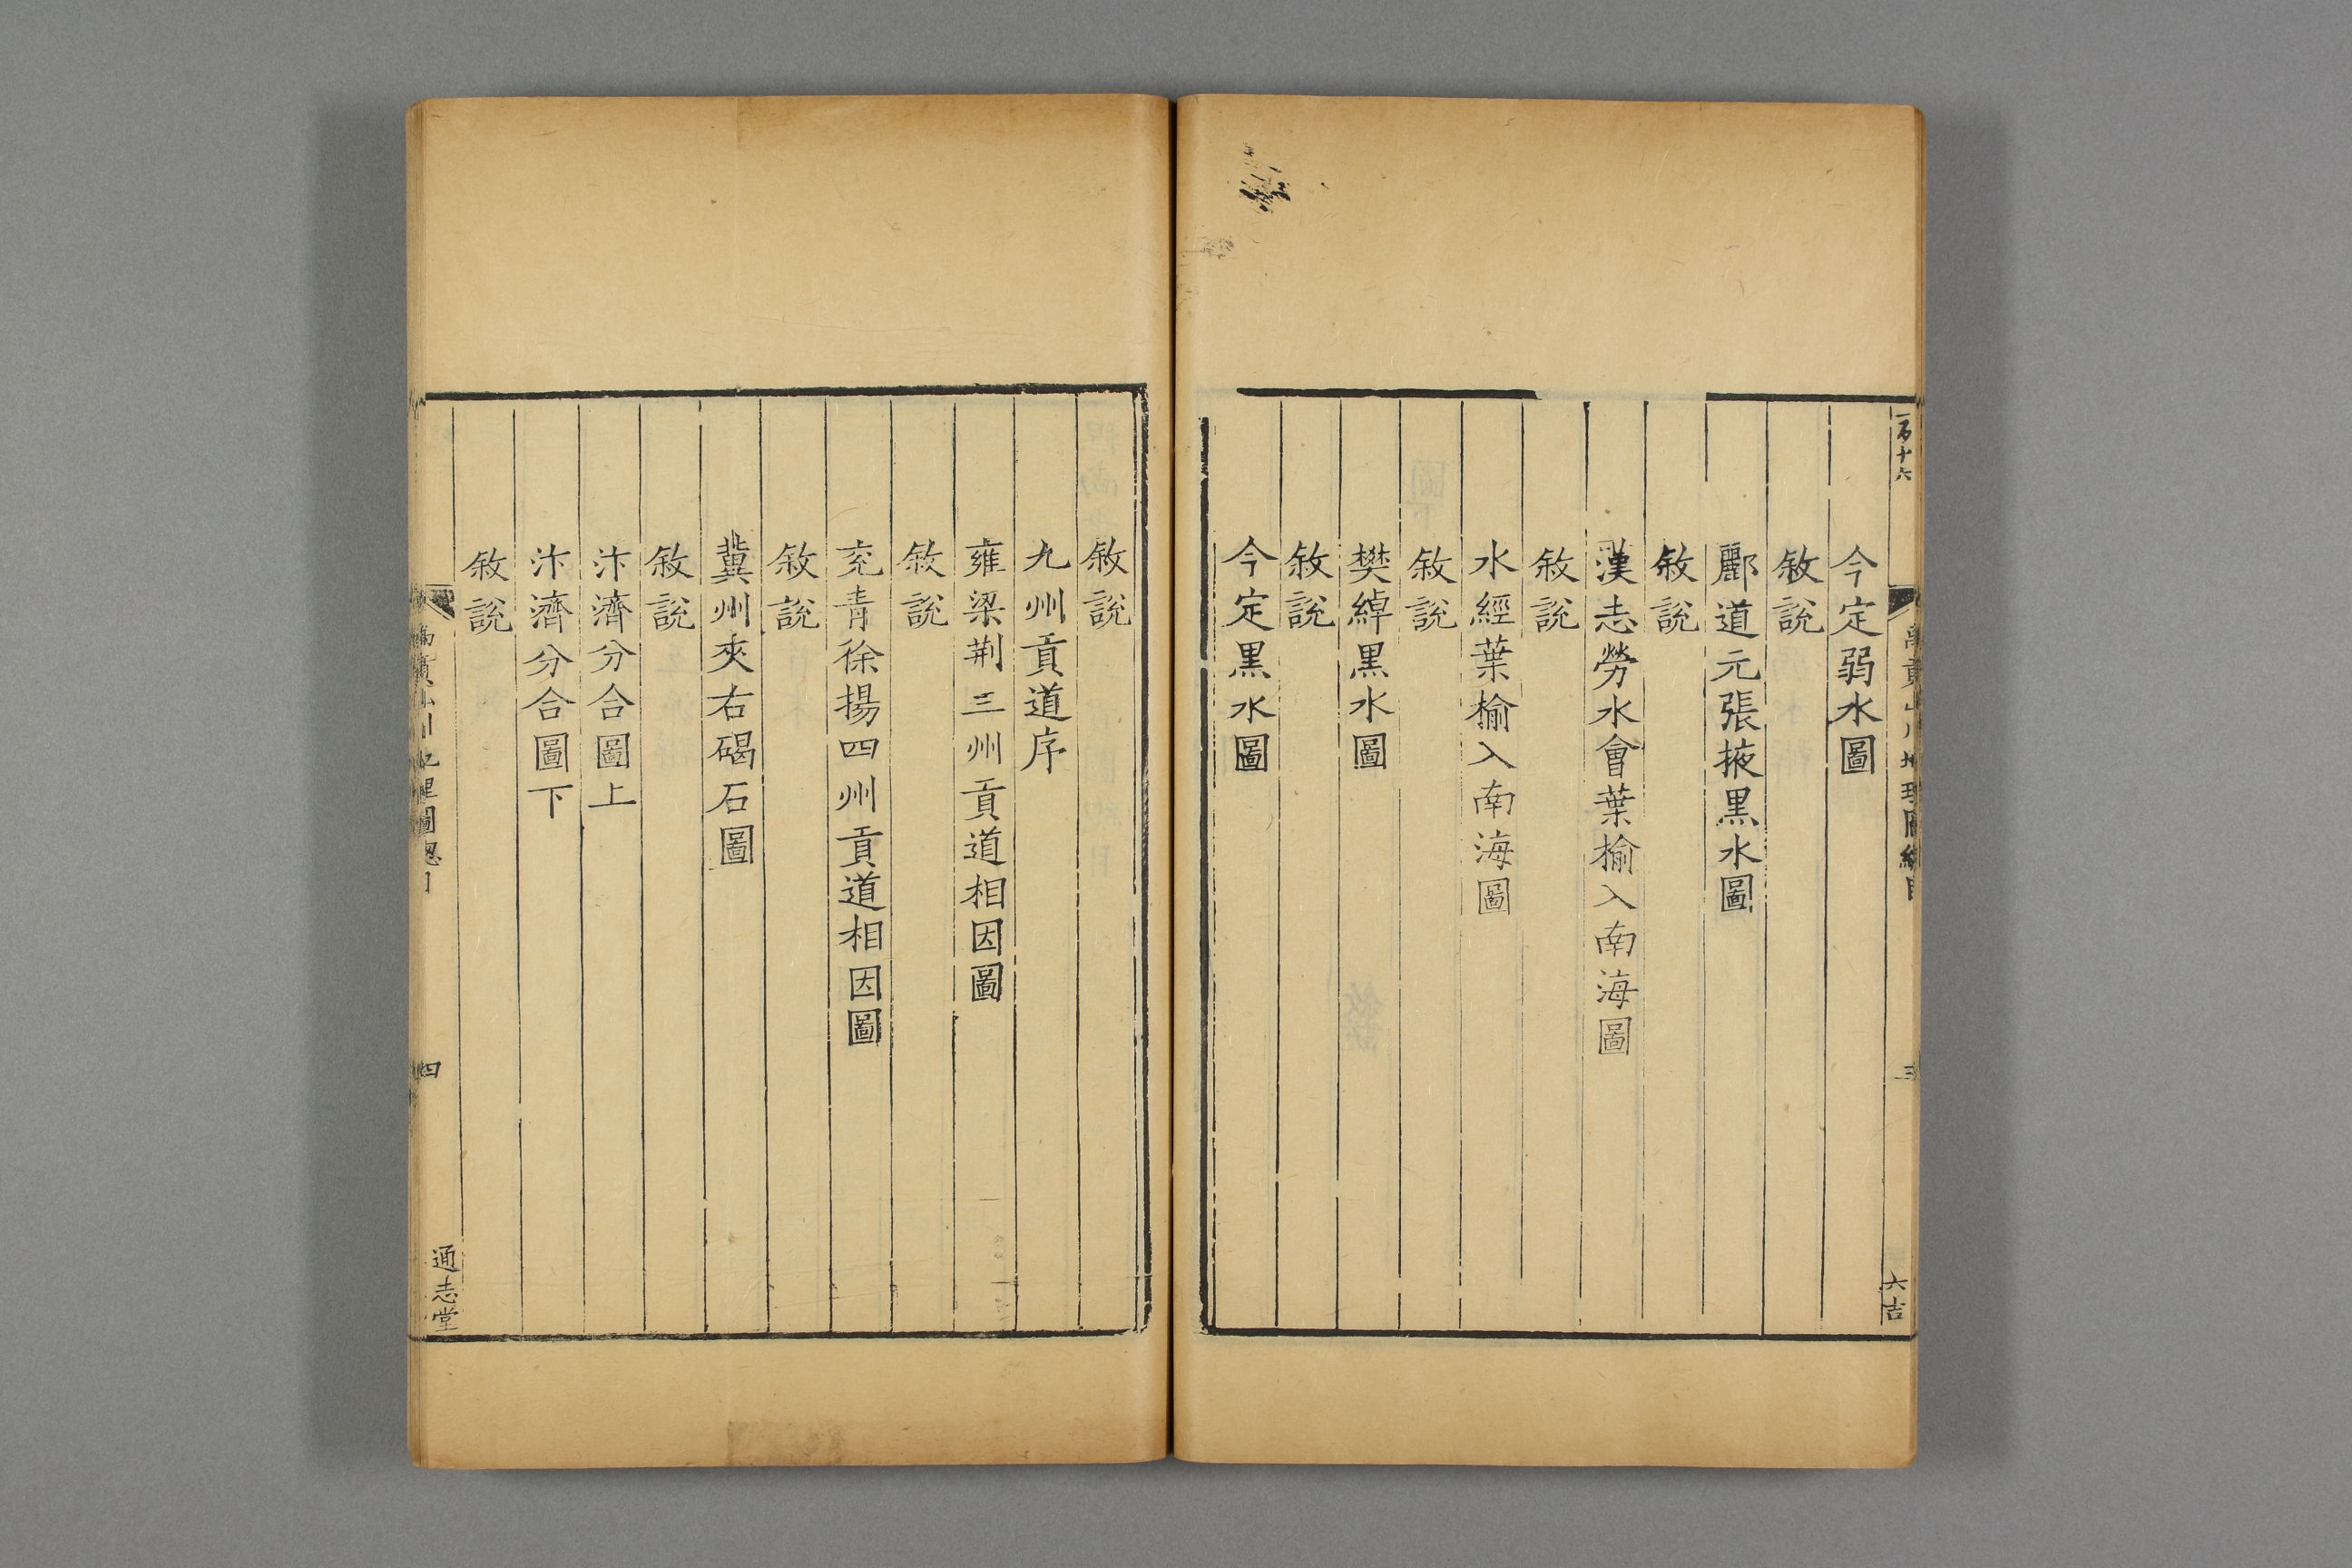 一百十六
禹貢山川地理圖總目
三
六吉
今定弱水圖
敘說
酈道元張掖黑水圖
敘說
漢志勞水會葉榆入南海圖
敘說
水經葉榆入南海圖
敘說
樊綽黑水圖
敘說
今定黑水圖
敘說
九州貢道序
雍梁荆三州貢道相因圖
敘說
兖青徐揚四州貢道相因圖
敘說
冀州夾右碣石圖
敘說
汴濟分合圖上
汴濟分合圖下
敘說
禹貢山川地理圖總目
四
通志堂